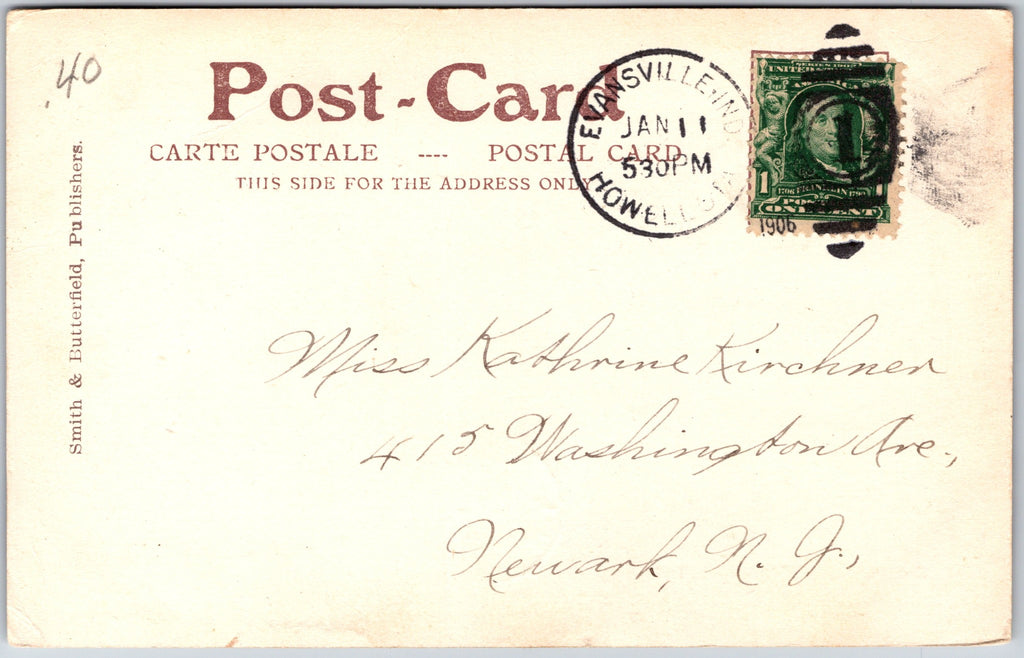 .40
Post-Card
CARTE POSTALE ---- POSTAL CARD
THIS SIDE FOR THE ADDRESS ONLY
Smith & Butterfield, Publishers.
EVANSVILLE-IND
JAN 11
530PM
HOWELL STA
1906
SERIES 1902
UNITED STATES
AMERICA
1 FRANKLIN 1
ONE CENT
1
Miss Kathrine Kirchner
415 Washington Ave.,
Newark, N. J.,